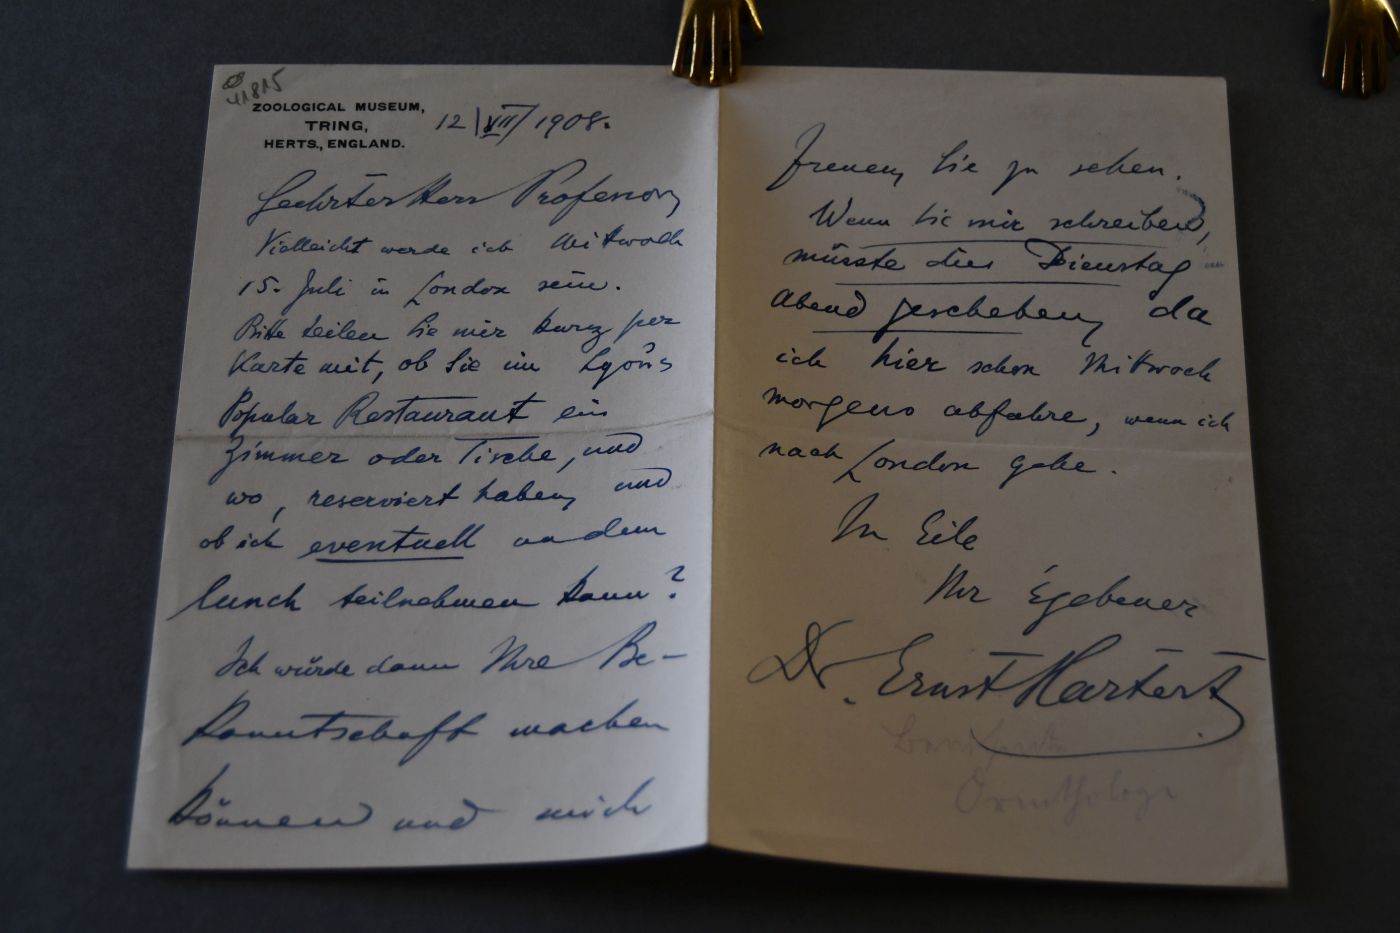 41815
ZOOLOGICAL MUSEUM,
TRING,
HERTS., ENGLAND.
12/VII/1908.
Geehrter Herr Professor,
Vielleicht werde ich Mittwoch
15. Juli in London sein.
Bitte teilen Sie mir kurz per
Karte mit, ob Sie im Lyons
Popular Restaurant ein
Zimmer oder Tische, und
wo, reserviert haben, und
ob ich eventuell an dem
lunch teilnehmen kann?
Ich würde dann Ihre Be-
kanntschaft machen
können und mich
freuen, Sie zu sehen.
Wenn Sie mir schreiben,
müsste dies Dienstag
Abend geschehen, da
ich hier schon Mittwoch
morgens abfahre, wenn ich
nach London gehe.
In Eile
Ihr Ergebener
Dr. Ernst Hartert
Ornithologe